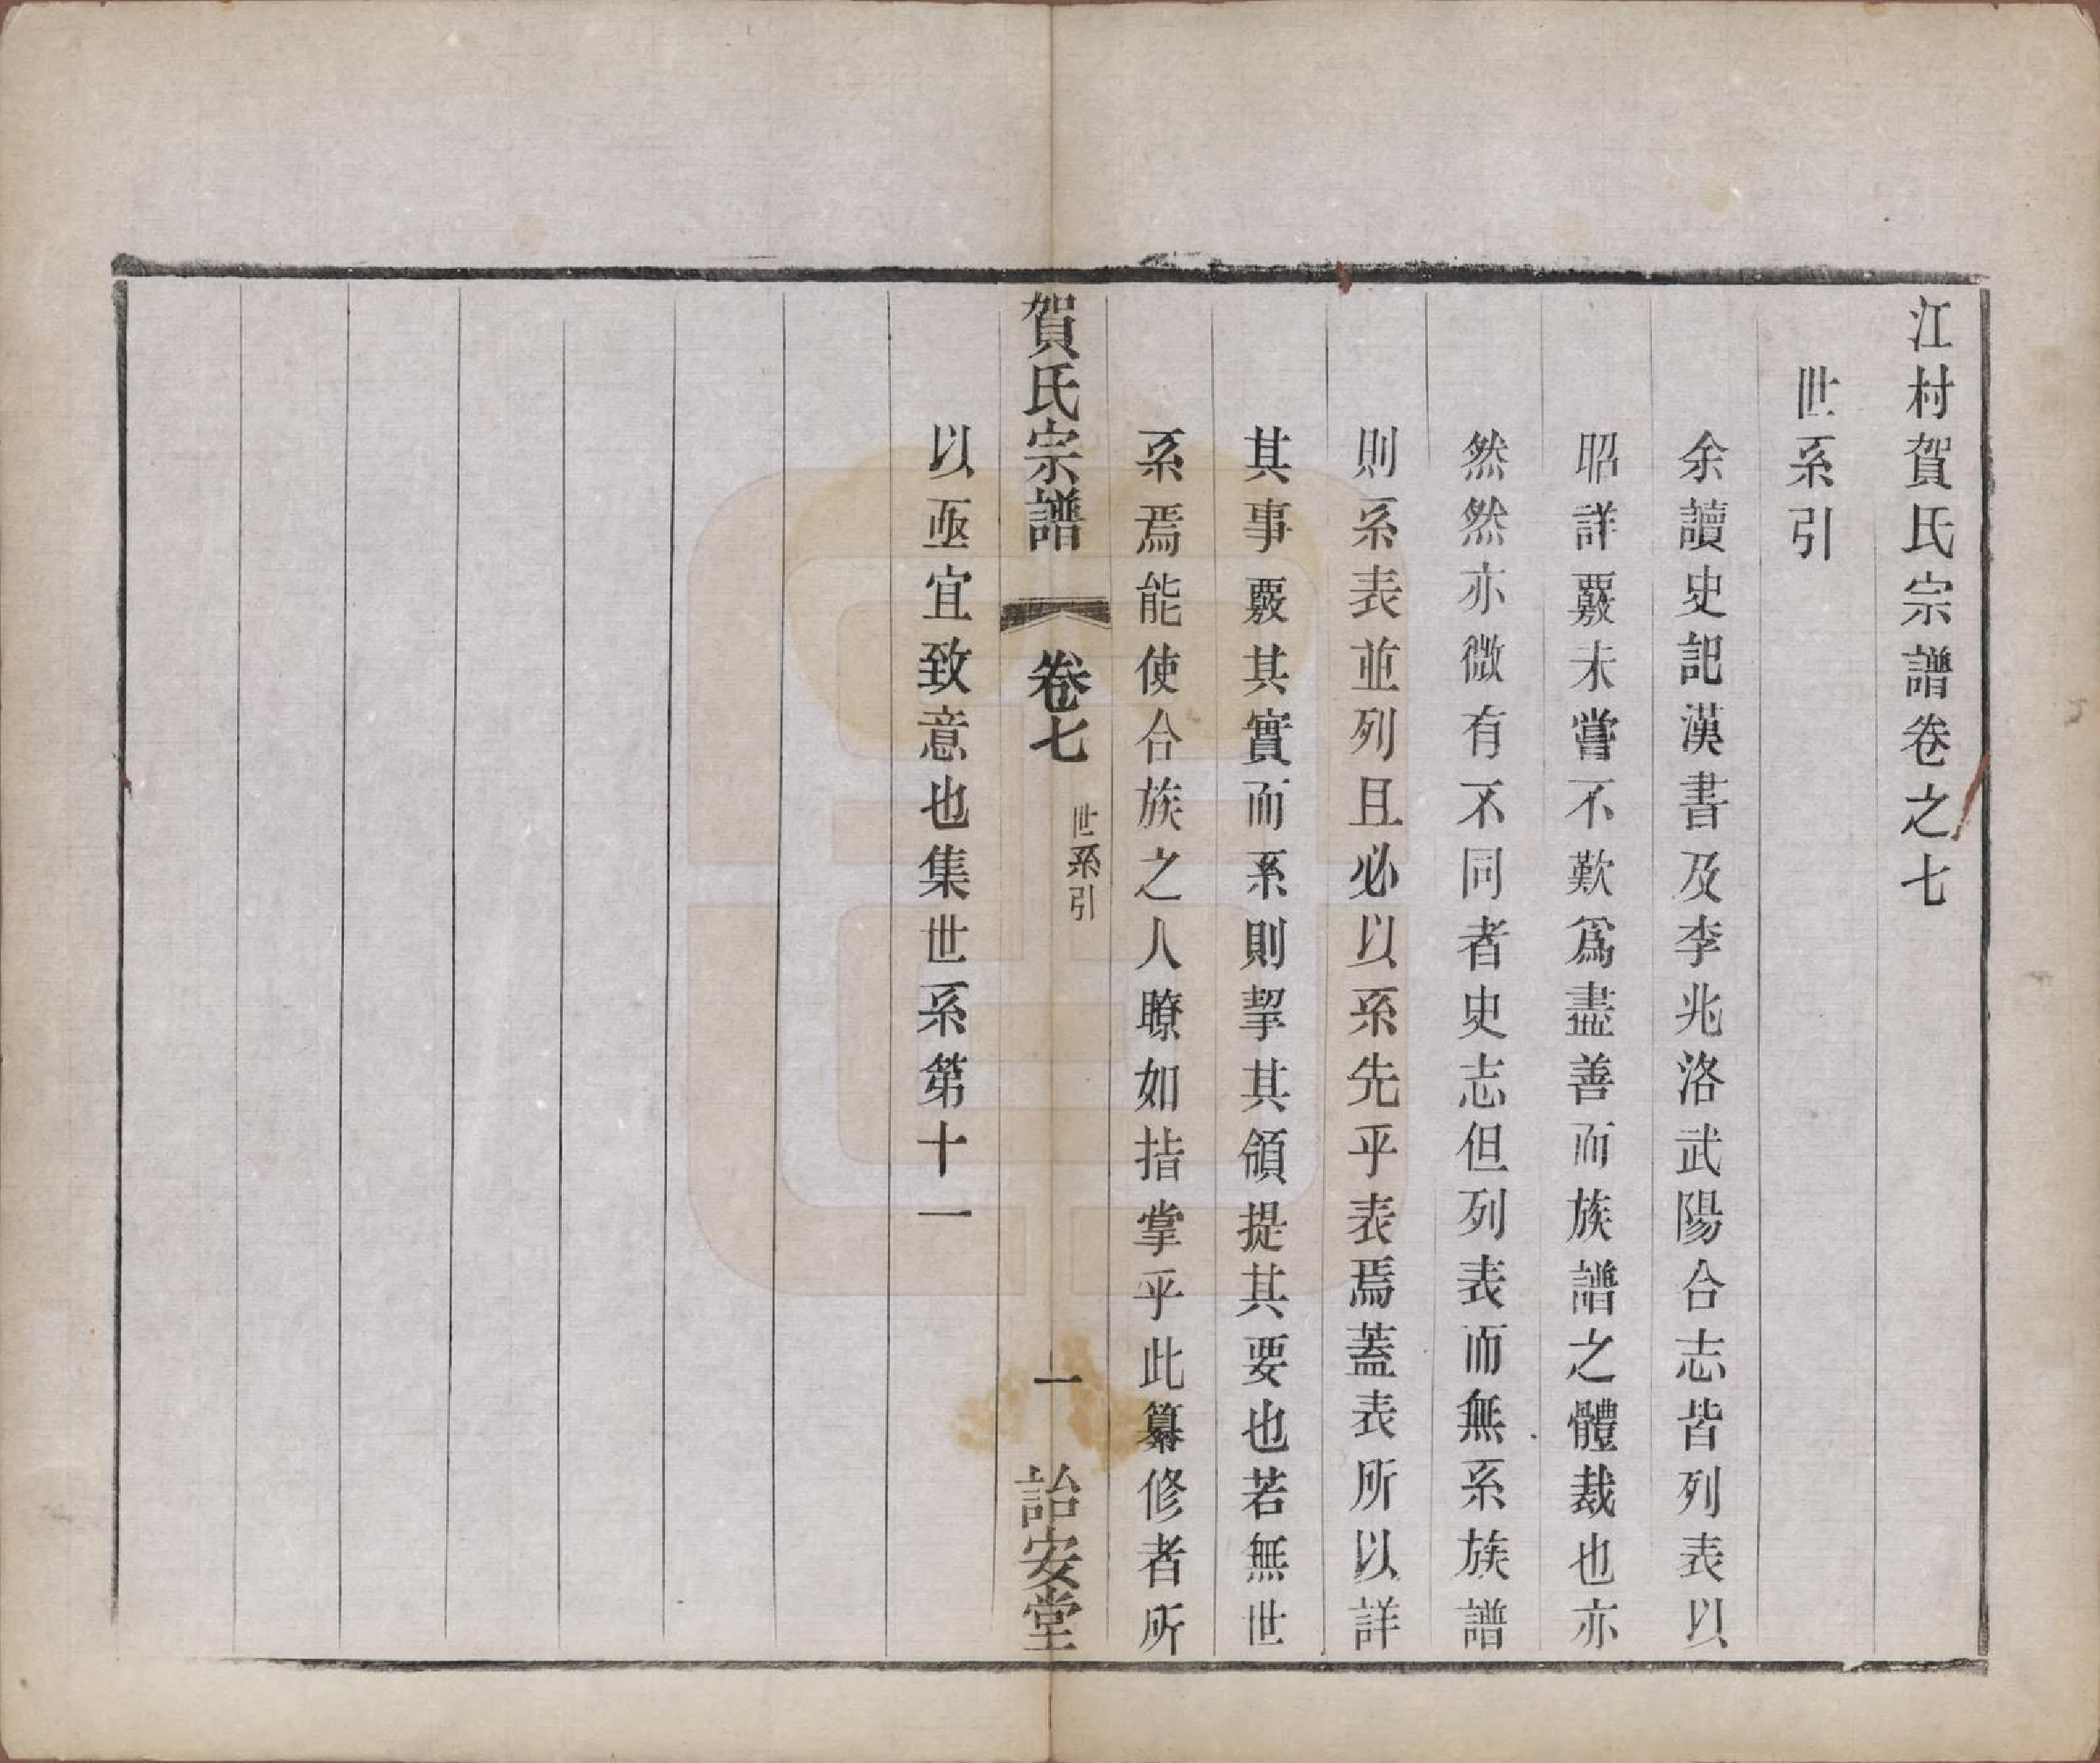 江村賀氏宗譜卷之七
世系引
余讀史記漢書及李兆洛武陽合志皆列表以
昭詳覈未嘗不歎爲盡善而族譜之體裁也亦
然然亦微有不同者史志但列表而無系族譜
則系表並列且必以系先乎表焉蓋表所以詳
其事覈其實而系則挈其領提其要也若無世
系焉能使合族之人瞭如指掌乎此纂修者所
賀氏宗譜
卷七
世系引
一
詒安堂
以亟宜致意也集世系第十一